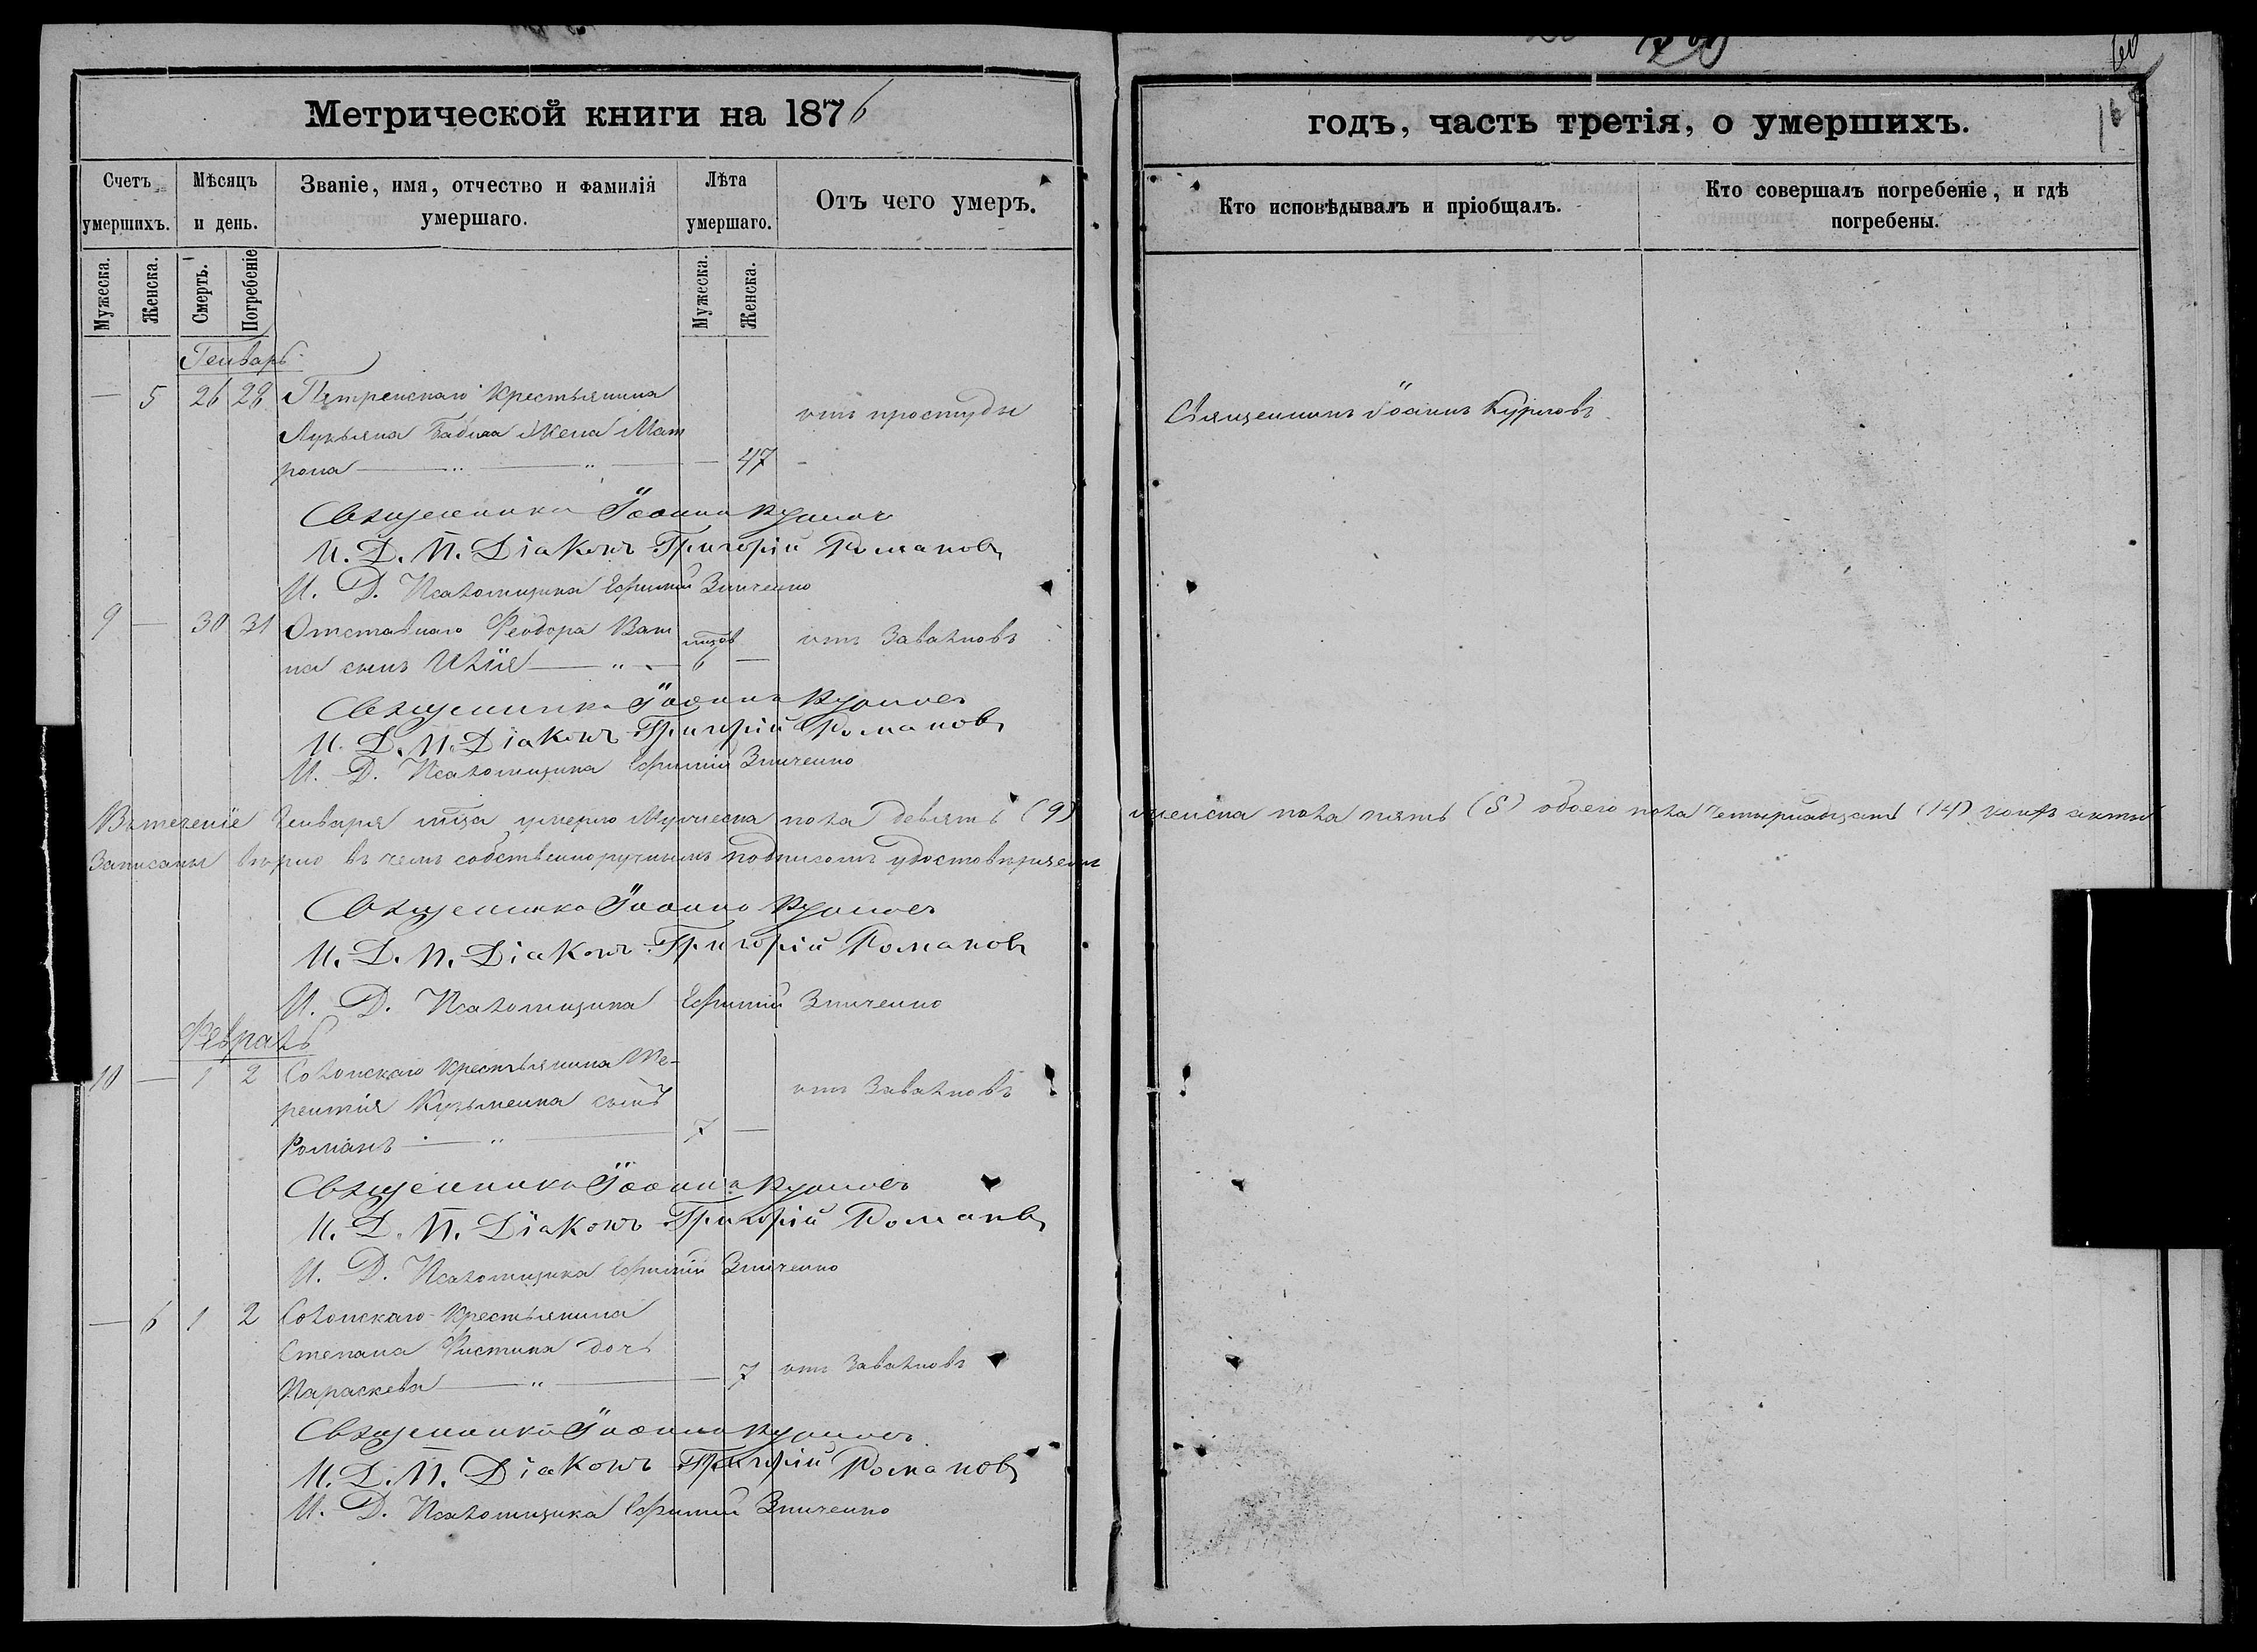 Метрической книги на 1876
годъ, часть третія, о умершихъ.
Счетъ умершихъ.
Мѣсяцъ и день.
Званіе, имя, отчество и фамилія умершаго.
Лѣта умершаго.
Отъ чего умеръ.
Кто исповѣдывалъ и пріобщалъ.
Кто совершалъ погребеніе, и гдѣ погребены.
Мужеска. Женска. Смерть. Погребеніе Мужеска. Женска.
Генварь
— 5 26 28 Петренскаго крестьянина
Лукьяна Бабича жена Мат отъ простуды Священникъ Іоаннъ Куриловъ
рона — 47
Священникъ Іоаннъ
И. Д. П. Діаконъ Григорій Романовъ
И. Д. Псаломщика Ефимій Зинченко
9 — 30 31 Отставнаго Феодора мцов отъ Завалковъ
на сынъ Илія 6 —
Священникъ Іоаннъ
И. Д. П. Діаконъ Григорій Романовъ
И. Д. Псаломщика Ефимій Зинченко
Въ теченіе Генваря мца умерло Мужеска пола девять (9) женска пола пять (5) обоего пола четырнадцать (14) акты
Записаны вѣрно въ чемъ собственноручнымъ подписомъ удостовѣряемъ
Священникъ Іоаннъ
И. Д. П. Діаконъ Григорій Романовъ
И. Д. Псаломщика Ефимій Зинченко
Февраль
10 — 1 2 Солонскаго крестьянина Те-
рентія Кузьменка сынъ отъ Завалковъ
Романъ 7 —
Священникъ Іоаннъ
И. Д. П. Діаконъ Григорій Романвъ
И. Д. Псаломщика Ефимій Зинченко
— 6 1 2 Солонскаго крестьянина
Степана дочь
Параскева — 7 отъ Завалковъ
Священникъ Іоаннъ
И. Д. П. Діаконъ Григорій Романовъ
И. Д. Псаломщика Ефимій Зинченко